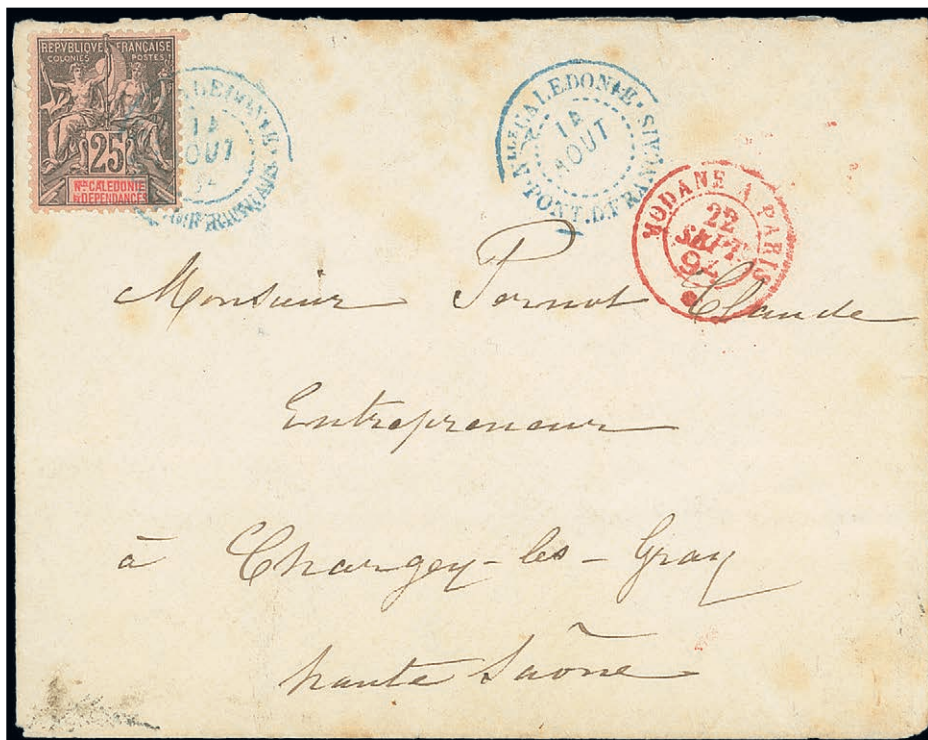 REPVBLIQVE FRANÇAISE
COLONIES POSTES
25
Nlle CALÉDONIE
& DÉPENDANCES
14
AOUT
Nlle CALEDONIE
14
AOUT
PONT.D.FRANÇAIS
MODANE A PARIS
22
SEPT
94
Monsieur Pernot Claude
Entrepreneur
à Chargey-les-Gray
haute Saône